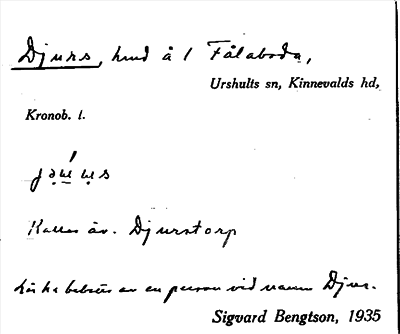 Djurs, hmd å 1 Fålaboda,
Urshults sn, Kinnevalds hd,
Kronob. l.
Kallas äv. Djurstorp
ha bebotts av en person vid namn Djur.
Sigvard Bengtson, 1935